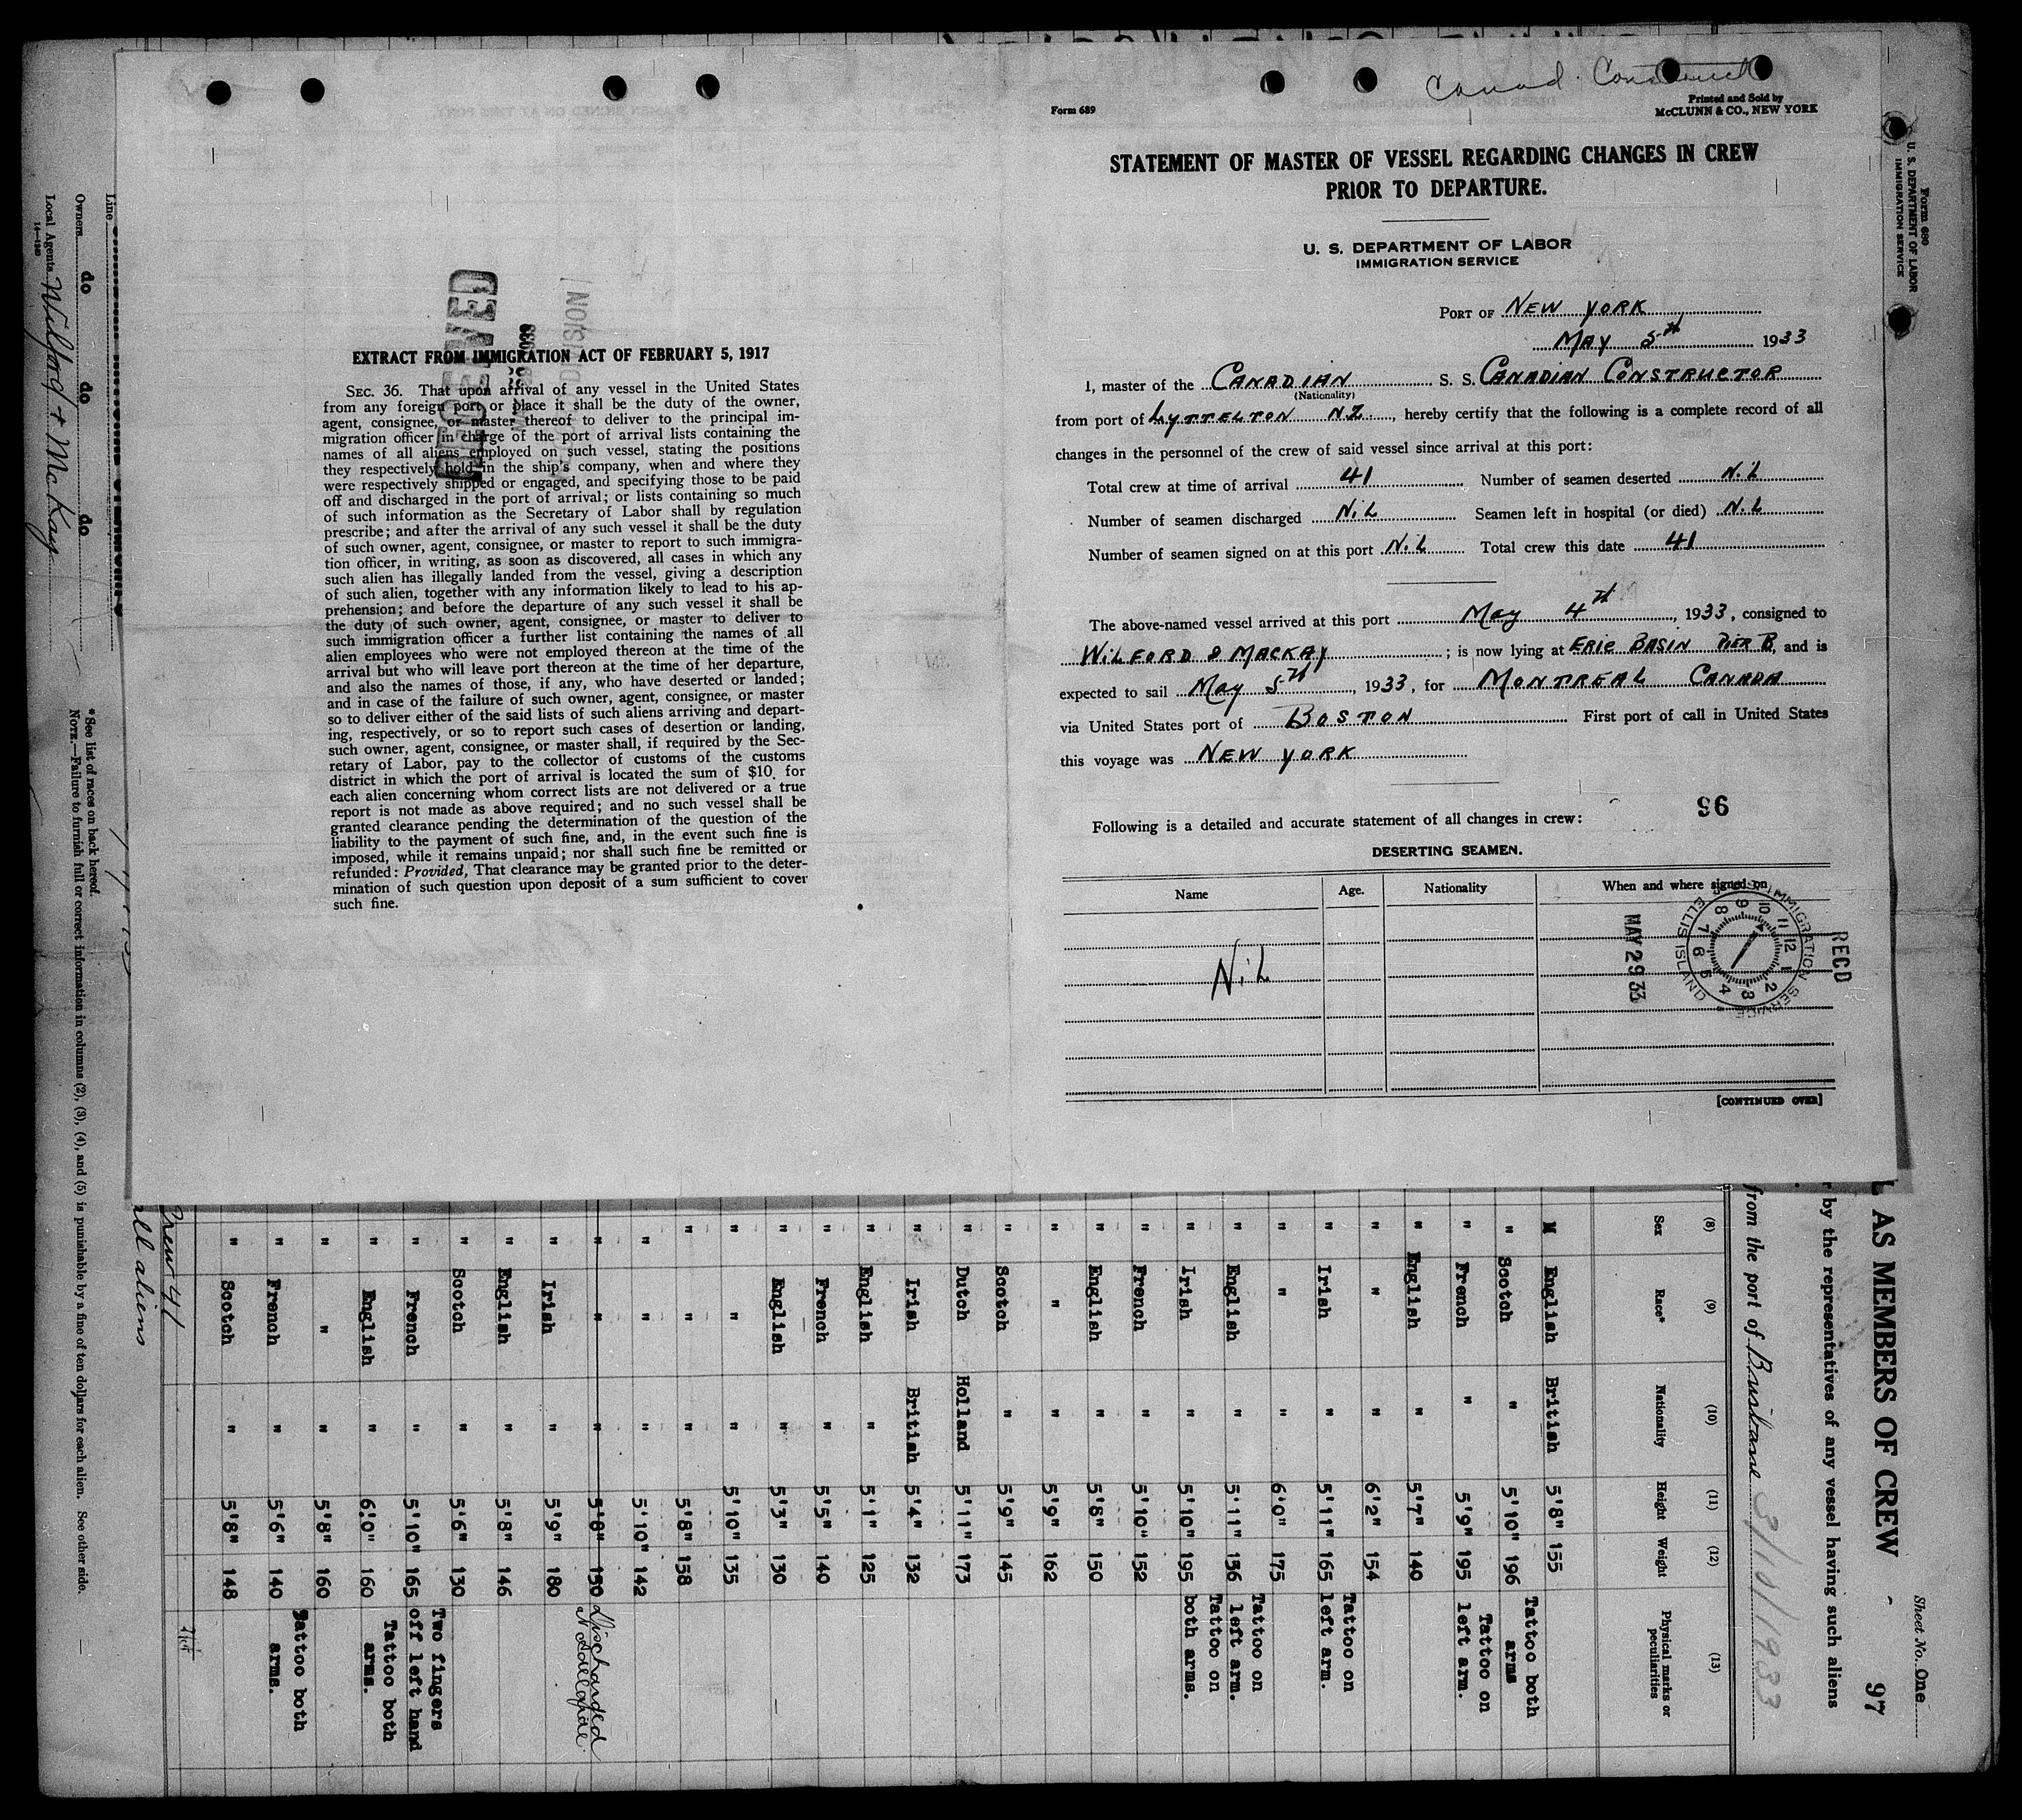 Canad. Construct
Form 689
Printed and Sold by
McCLUNN & CO., NEW YORK
STATEMENT OF MASTER OF VESSEL REGARDING CHANGES IN CREW
PRIOR TO DEPARTURE.
U. S. DEPARTMENT OF LABOR
IMMIGRATION SERVICE
PORT OF NEW YORK
MAY 5th 1933
I, master of the CANADIAN S. S. CANADIAN CONSTRUCTOR
(Nationality)
from port of LYTTELTON N.Z., hereby certify that the following is a complete record of all
changes in the personnel of the crew of said vessel since arrival at this port:
Total crew at time of arrival 41 Number of seamen deserted NiL
Number of seamen discharged NiL Seamen left in hospital (or died) NiL
Number of seamen signed on at this port NiL Total crew this date 41
The above-named vessel arrived at this port May 4th, 1933, consigned to
WILFORD & MACKAY; is now lying at ERIE BASIN PIER B, and is
expected to sail May 5th, 1933, for MONTREAL CANADA
via United States port of BOSTON First port of call in United States
this voyage was NEW YORK
96
Following is a detailed and accurate statement of all changes in crew:
DESERTING SEAMEN.
Name Age. Nationality When and where signed on
NiL
RECD
IMMIGRATION SERVICE
ELLIS ISLAND
MAY 29 33
[CONTINUED OVER]
EXTRACT FROM IMMIGRATION ACT OF FEBRUARY 5, 1917
SEC. 36. That upon arrival of any vessel in the United States
from any foreign port or place it shall be the duty of the owner,
agent, consignee, or master thereof to deliver to the principal im-
migration officer in charge of the port of arrival lists containing the
names of all aliens employed on such vessel, stating the positions
they respectively hold in the ship's company, when and where they
were respectively shipped or engaged, and specifying those to be paid
off and discharged in the port of arrival; or lists containing so much
of such information as the Secretary of Labor shall by regulation
prescribe; and after the arrival of any such vessel it shall be the duty
of such owner, agent, consignee, or master to report to such immigra-
tion officer, in writing, as soon as discovered, all cases in which any
such alien has illegally landed from the vessel, giving a description
of such alien, together with any information likely to lead to his ap-
prehension; and before the departure of any such vessel it shall be
the duty of such owner, agent, consignee, or master to deliver to
such immigration officer a further list containing the names of all
alien employees who were not employed thereon at the time of the
arrival but who will leave port thereon at the time of her departure,
and also the names of those, if any, who have deserted or landed;
and in case of the failure of such owner, agent, consignee, or master
so to deliver either of the said lists of such aliens arriving and depart-
ing, respectively, or so to report such cases of desertion or landing,
such owner, agent, consignee, or master shall, if required by the Sec-
retary of Labor, pay to the collector of customs of the customs
district in which the port of arrival is located the sum of $10 for
each alien concerning whom correct lists are not delivered or a true
report is not made as above required; and no such vessel shall be
granted clearance pending the determination of the question of the
liability to the payment of such fine, and, in the event such fine is
imposed, while it remains unpaid; nor shall such fine be remitted or
refunded: Provided, That clearance may be granted prior to the deter-
mination of such question upon deposit of a sum sufficient to cover
such fine.
Form 680
U. S. DEPARTMENT OF LABOR
IMMIGRATION SERVICE
Sheet No. One
97
AS MEMBERS OF CREW
by the representatives of any vessel having such aliens
from the port of Brisbane 3/10/1933
(8) (9) (10) (11) (12) (13)
Sex Race* Nationality Height Weight Physical marks or peculiarities
M English British 5'8" 155
" Scotch " 5'10" 196 Tattoo both arms
" French " 5'9" 195 Tattoo on left arm.
" English " 5'7" 140
" " " 6'2" 154
" Irish " 5'11" 165 Tattoo on left arm.
" " " 6'0" 175
" English " 5'11" 136 Tattoo on left arm.
" Irish " 5'10" 195 Tattoo on both arms.
" French " 5'10" 152
" English " 5'8" 150
" " " 5'9" 162
" Scotch " 5'9" 145
" Dutch Holland 5'11" 173
" Irish British 5'4" 132
" English " 5'1" 125
" French " 5'5" 140
" English " 5'3" 130
" " " 5'10" 135
" " " 5'8" 158
" " " 5'10" 142
" " " 5'8" 150 Discharged
" Irish " 5'9" 180
" English " 5'8" 146
" Scotch " 5'6" 130
" French " 5'10" 165 Two fingers off left hand
" English " 6'0" 160 Tattoo both arms.
" " " 5'8" 160
" French " 5'6" 140 Tattoo both arms.
" Scotch " 5'8" 148
Crew 41
all aliens
Line
Owners do do do
Local Agents Wilford & McKay
14—1240
* See list of races on back hereof.
NOTE.—Failure to furnish full or correct information in columns (2), (3), (4), and (5) is punishable by a fine of ten dollars for each alien. See other side.